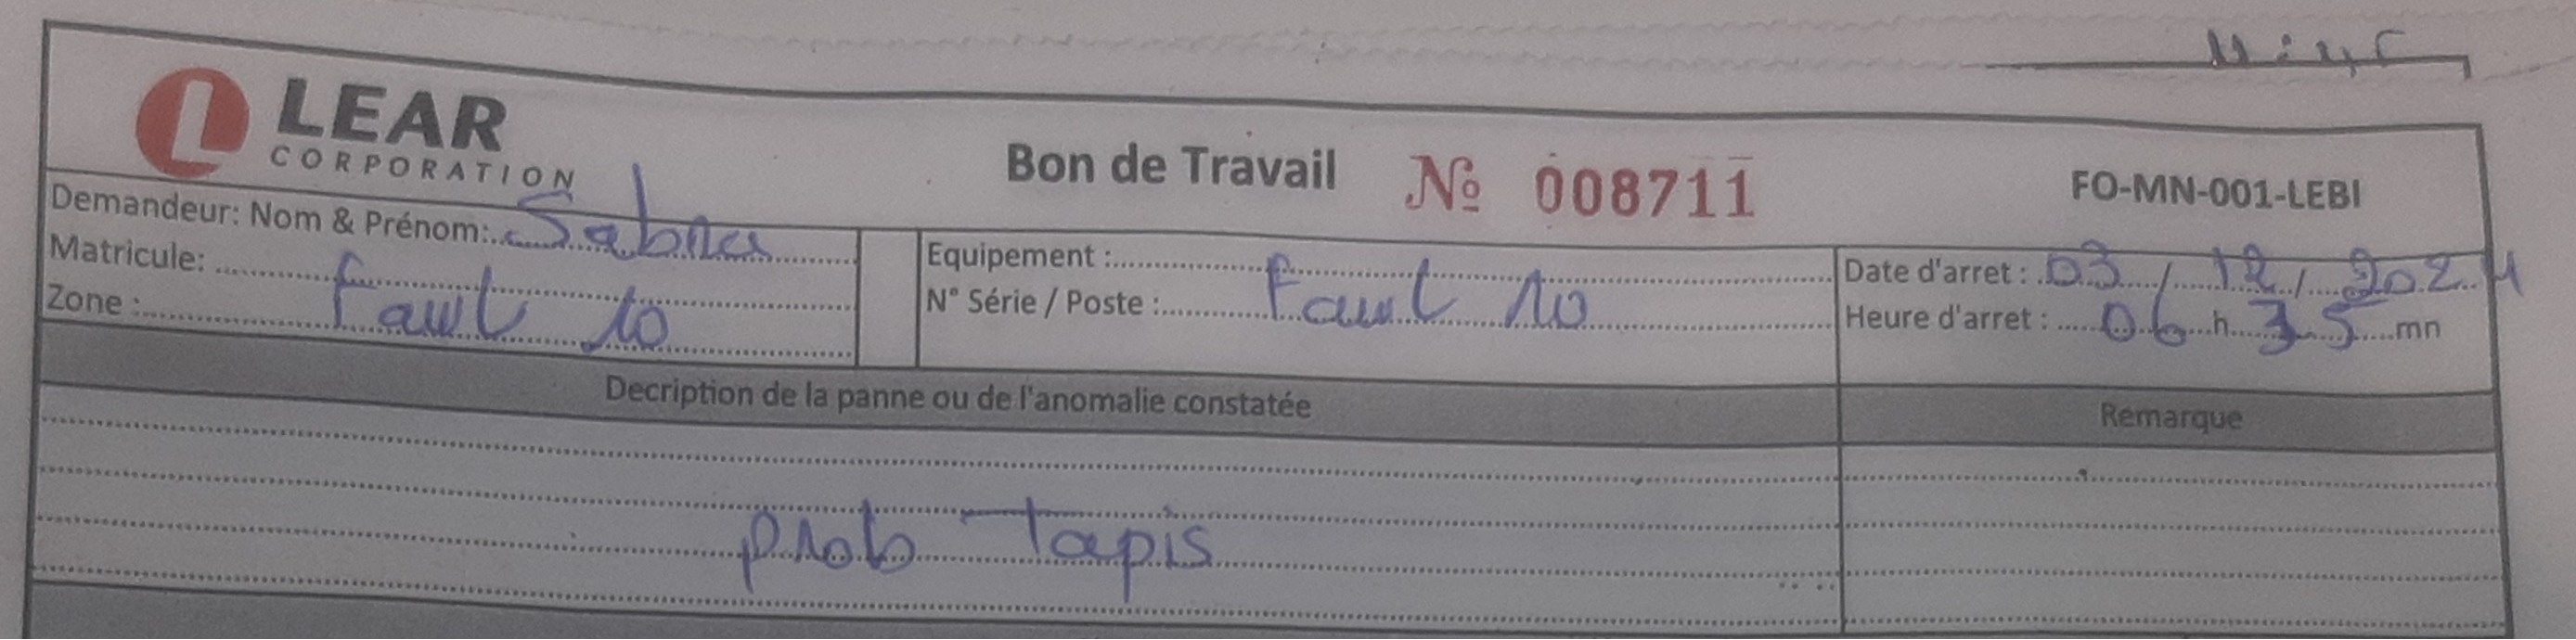 LEAR
CORPORATION
Bon de Travail № 008711
FO-MN-001-LEBI
Demandeur: Nom & Prénom:
Matricule:
Zone : Fawt 10
Equipement :
N° Série / Poste : Fawt 10
Date d'arret : 03 / 12 / 2024
Heure d'arret : 06 h 35 mn
Decription de la panne ou de l'anomalie constatée
Remarque
prob Tapis